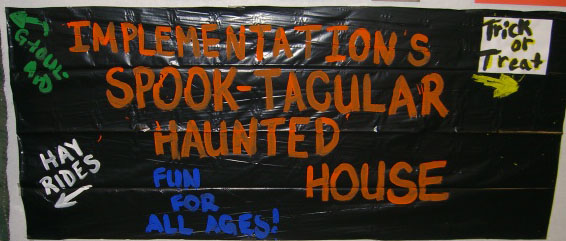 IMPLEMENTATION'S
SPOOK-TACULAR
HAUNTED
HOUSE
FUN
FOR
ALL AGES!
GHOUL-
AID
HAY
RIDES
Trick
or
Treat